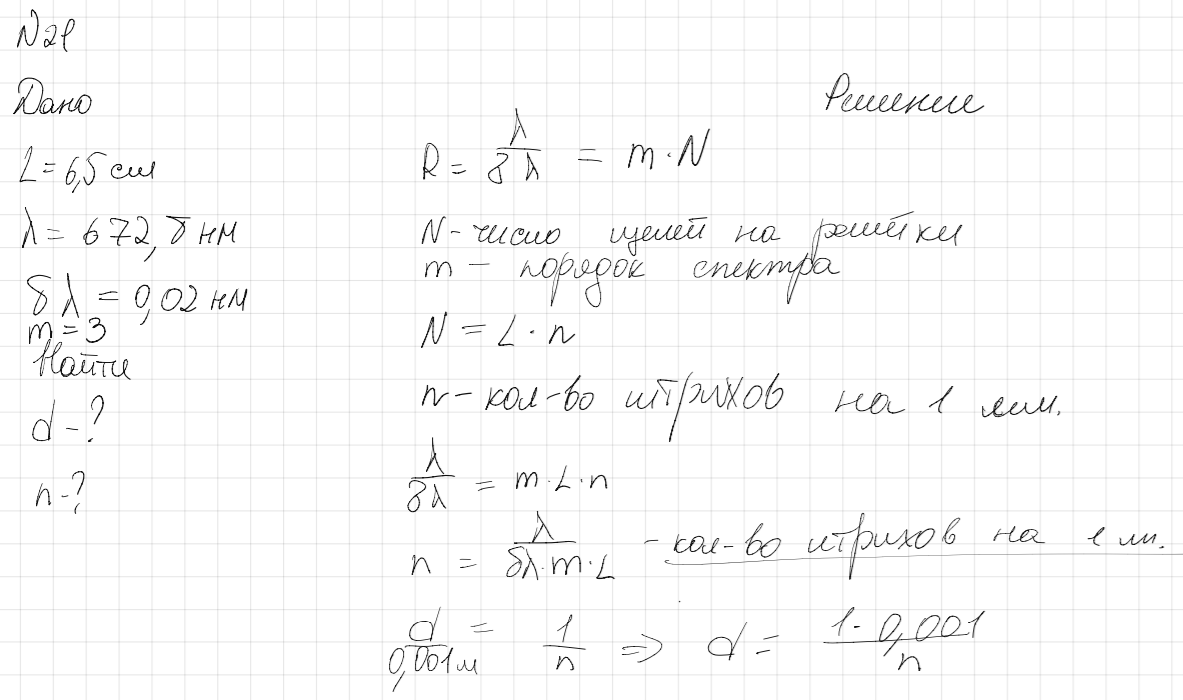 N21
Дано
L = 6,5 см
λ = 672,8 нм
δλ = 0,02 нм
m = 3
Найти
d - ?
n - ?
Решение
R = λ/δλ = m · N
N - число щелей на решётки
m - порядок спектра
N = L · n
n - кол-во штрихов на 1 мм.
λ/δλ = m · L · n
n = λ/(δλ · m · L) - кол-во штрихов на 1 мм.
d/0,001м = 1/n => d = (1 · 0,001)/n